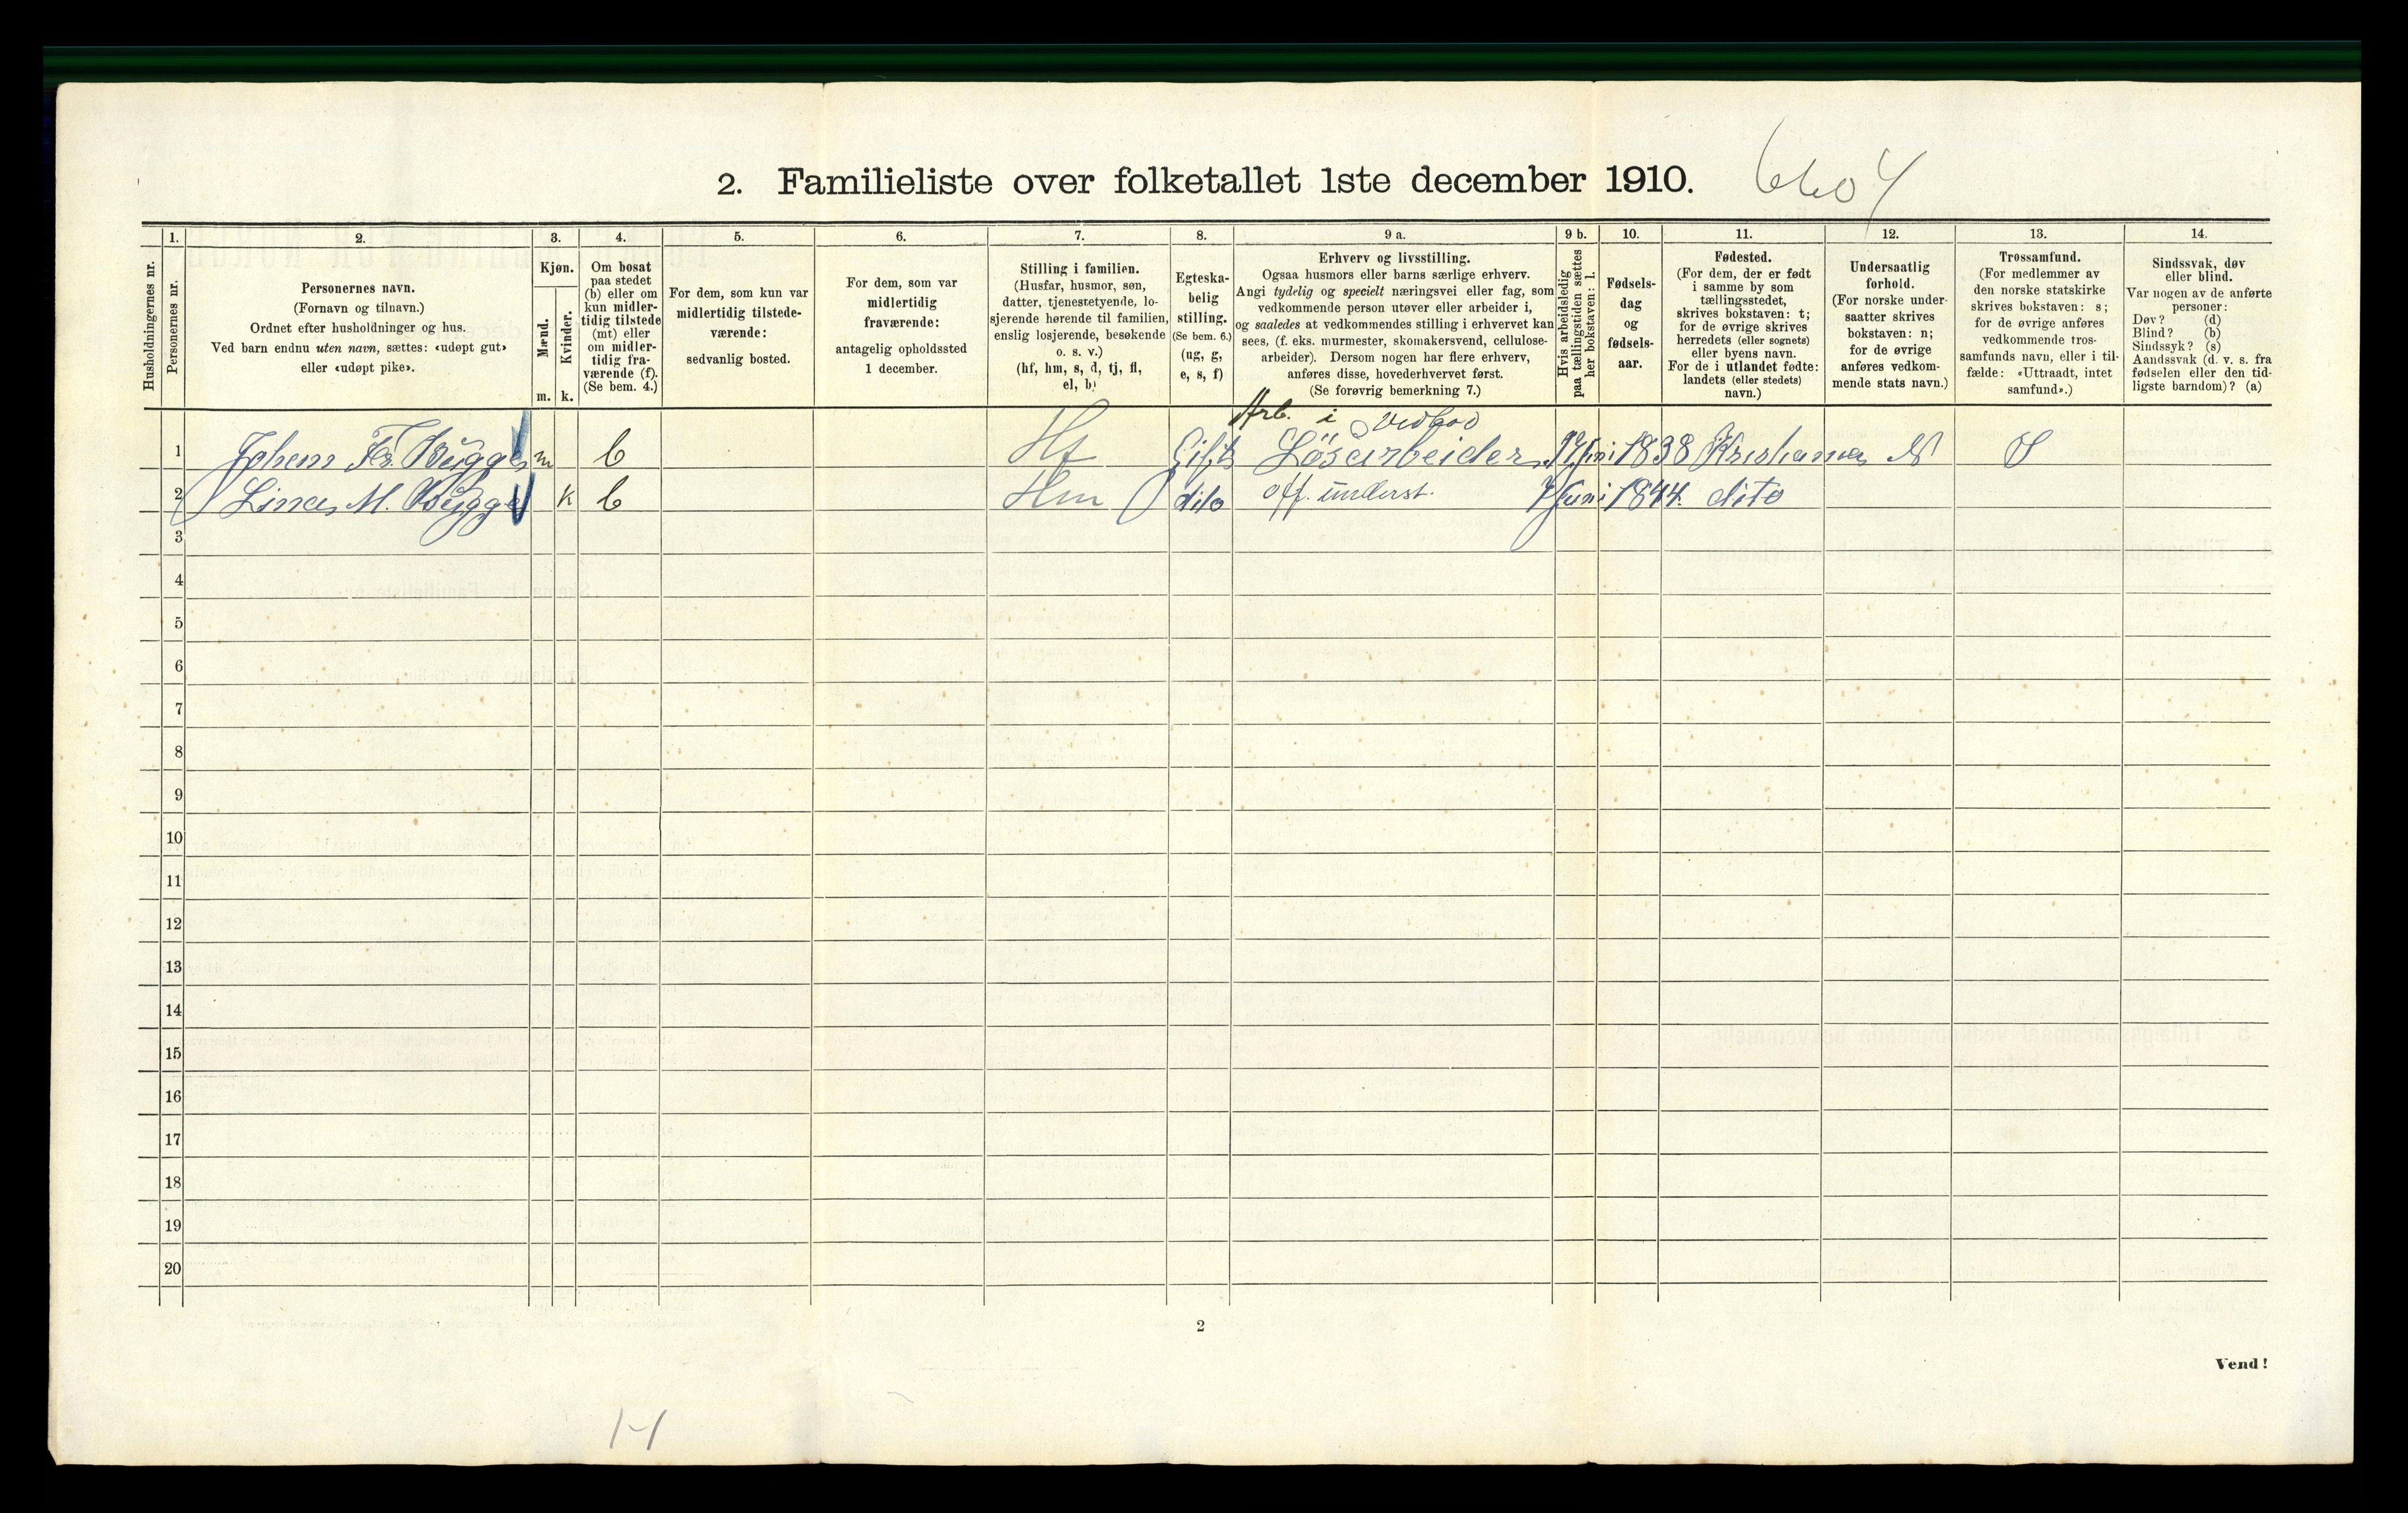 2. Familieliste over folketallet 1ste december 1910.
6604
Husholdningernes nr.
1.
Personernes nr.
2.
Personernes navn.
(Fornavn og tilnavn.)
Ordnet efter husholdninger og hus.
Ved barn endnu uten navn, sættes: «udøpt gut»
eller «udøpt pike».
3.
Kjøn.
Mænd.
m.
Kvinder.
k.
4.
Om bosat
paa stedet
(b) eller om
kun midler-
tidig tilstede
(mt) eller
om midler-
tidig fra-
værende (f).
(Se bem. 4.)
5.
For dem, som kun var
midlertidig tilstede-
værende:
sedvanlig bosted.
6.
For dem, som var
midlertidig
fraværende:
antagelig opholdssted
1 december.
7.
Stilling i familien.
(Husfar, husmor, søn,
datter, tjenestetyende, lo-
sjerende hørende til familien,
enslig losjerende, besøkende
o. s. v.)
(hf, hm, s, d, tj, fl,
el, b)
8.
Egteska-
belig
stilling.
(Se bem. 6.)
(ug, g,
e, s, f)
9 a.
Erhverv og livsstilling.
Ogsaa husmors eller barns særlige erhverv.
Angi tydelig og specielt næringsvei eller fag, som
vedkommende person utøver eller arbeider i,
og saaledes at vedkommendes stilling i erhvervet kan
sees, (f. eks. murmester, skomakersvend, cellulose-
arbeider). Dersom nogen har flere erhverv,
anføres disse, hovederhvervet først.
(Se forøvrig bemerkning 7.)
9 b.
Hvis arbeidsledig
paa tællingstiden sættes
her bokstaven: l.
10.
Fødsels-
dag
og
fødsels-
aar.
11.
Fødested.
(For dem, der er født
i samme by som
tællingsstedet,
skrives bokstaven: t;
for de øvrige skrives
herredets (eller sognets)
eller byens navn.
For de i utlandet fødte:
landets (eller stedets)
navn.)
12.
Undersaatlig
forhold.
(For norske under-
saatter skrives
bokstaven: n;
for de øvrige
anføres vedkom-
mende stats navn.)
13.
Trossamfund.
(For medlemmer av
den norske statskirke
skrives bokstaven: s;
for de øvrige anføres
vedkommende tros-
samfunds navn, eller i til-
fælde: «Uttraadt, intet
samfund».)
14.
Sindssvak, døv
eller blind.
Var nogen av de anførte
personer:
Døv? (d)
Blind? (b)
Sindssyk? (s)
Aandssvak (d. v. s. fra
fødselen eller den tid-
ligste barndom)? (a)
Arb. i Vedbod
1 Johan Fr. Bügge m b Hf Gift Løsarbeider 17 Juni 1838 Kristiania N S
2 Lina M. Bügge k b Hm dito off. underst. 7 Juni 1844. dito
3
4
5
6
7
8
9
10
11
12
13
14
15
16
17
18
19
20
2
Vend!